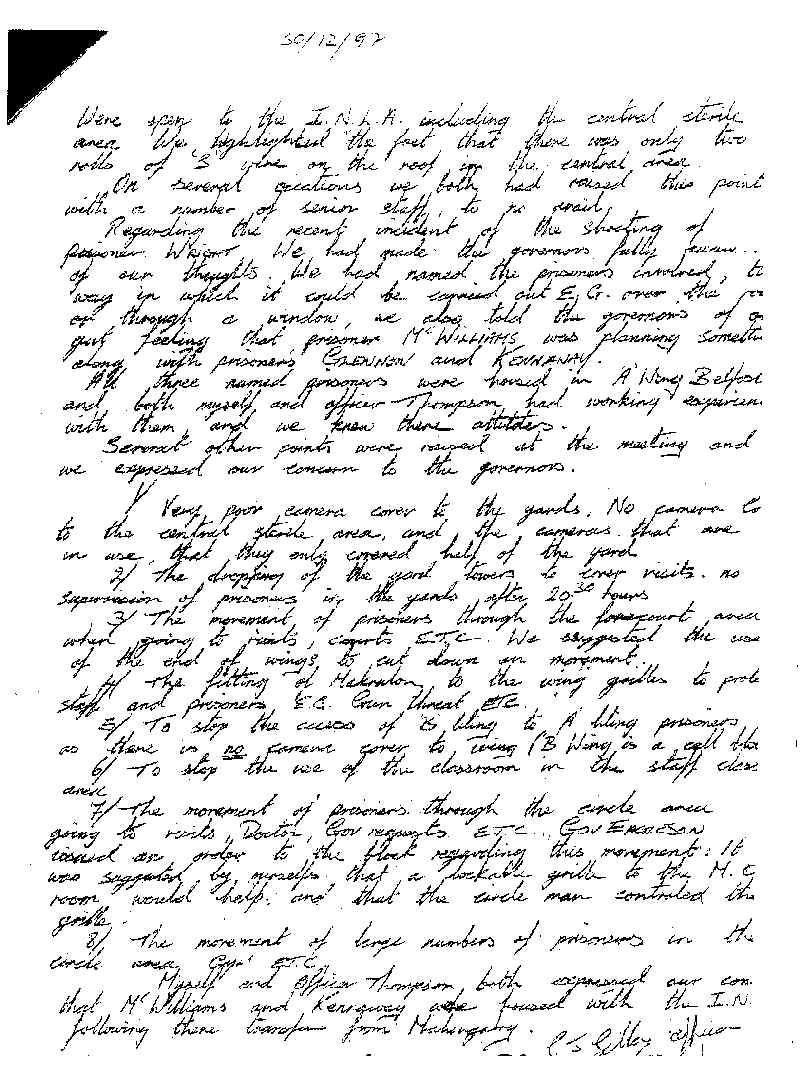 30/12/97
Were open to the I.N.L.A. including the central sterile
area. We highlighted the fact that there was only two
rolls of 'S' wire on the roof in the central area.
On several occations we both had raised this point
with a number of senior staff, to no avail.
Regarding the recent incident of the shooting of
prisoner WRIGHT. We had made the governors fully
of our thoughts. We had named the prisoners involved,
way in which it could be carried out E.G. over the
or through a window, we also told the governors of
gut feeling that prisoner McWILLIAMS was planning someth
along with prisoners GLENNON and KENNAWAY.
All three named prisoners were housed in A Wing Belfas
and both myself and officer Thompson had working experien
with them, and we knew there attitdes.
Several other points were raised at the meeting and
we expressed our concern to the governors.
1/ Very poor camera cover to the yards. No camera co
to the central sterile area, and the cameras that are
in use, that they only covered half of the yard
2/ The dropping of the yard towers to cover visits. no
supervision of prisoners in the yards after 20 30 hours
3/ The movement of prisoners through the forecourt area
when going to visits, courts ETC. We suggested the use
of the end of wings, to cut down on movement.
4/ The fitting of Makrolon to the wing grilles to prote
staff and prisoners E.G. Gun threat ETC.
5/ To stop the access of B Wing to A Wing prisoners,
as there is no camera cover to wing (B Wing is a cell
6/ To stop the use of the classroom in the staff
area
7/ The movement of prisoners through the circle area
going to visits, Doctor, Gov requests ETC.. GOV
issued an order to the block regarding this movement: It
was suggested by myselfs that a lockable grille to the M.C
room would help, and that the circle man controled th
grille.
8/ The movement of large numbers of prisoners in the
circle area Gym ETC.
Myself and Officer Thompson, both expressed our con
that McWilliams and Kennaway are housed with the I.N.
following there transfer from Maheraberry.
officer